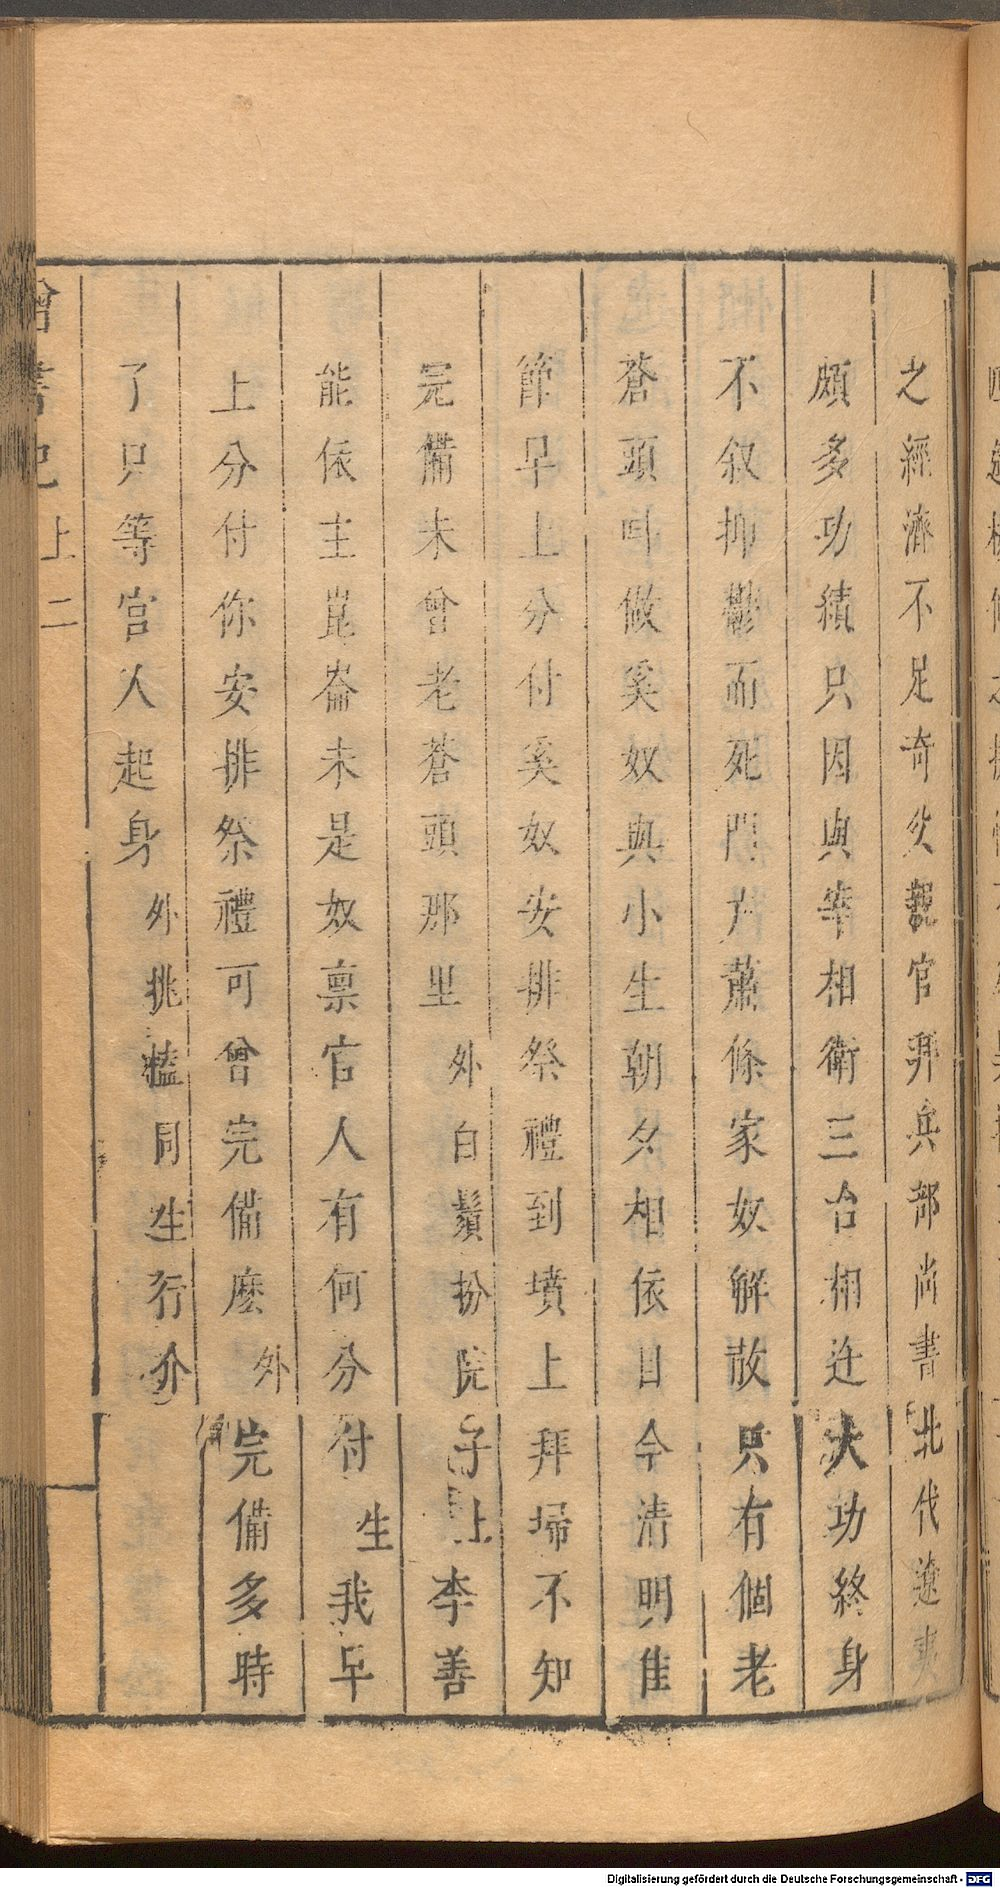 之經濟不足奇父親官拜兵部尚書北伐遼夷
頗多功績只因與宰相衛三台相迕大功終身
不叙抑鬱而死門户蕭條家奴解散只有個老
蒼頭叫做奚奴與小生朝夕相依目今清明佳
節早上分付奚奴安排祭禮到墳上拜掃不知
完備未曾老蒼頭那里 外白鬚扮院子上 李善
能依主崑崙未是奴禀官人有何分付 生 我早
上分付你安排祭禮可曾完備麽 外 完備多時
了只等官人起身 外挑榼同生行介
書記 上 二
Digitalisierung gefördert durch die Deutsche Forschungsgemeinschaft - DFG